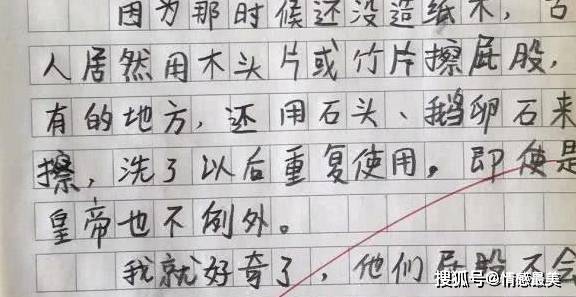 因为那时候还没造纸术，古
人居然用木头片或竹片擦屁股，
有的地方，还用石头、鹅卵石来
擦，洗了以后重复使用。即使是
皇帝也不例外。
我就好奇了，他们屁股不会
搜狐号@情感最美